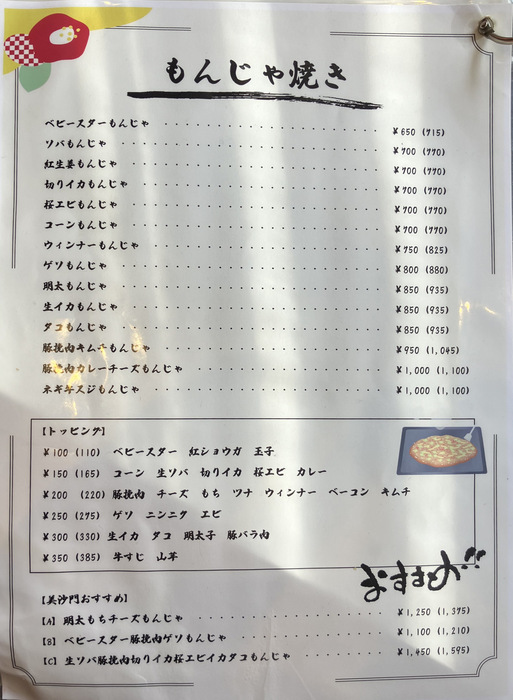 もんじゃ焼き
ベビースターもんじゃ ¥650 (715)
ソバもんじゃ ¥700 (770)
紅生姜もんじゃ ¥700 (770)
切りイカもんじゃ ¥700 (770)
桜エビもんじゃ ¥700 (770)
コーンもんじゃ ¥700 (770)
ウィンナーもんじゃ ¥750 (825)
ゲソもんじゃ ¥800 (880)
明太もんじゃ ¥850 (935)
生イカもんじゃ ¥850 (935)
タコもんじゃ ¥850 (935)
豚挽肉キムチもんじゃ ¥950 (1,045)
豚挽肉カレーチーズもんじゃ ¥1,000 (1,100)
ネギキスジもんじゃ ¥1,000 (1,100)
【トッピング】
¥100 (110) ベビースター 紅ショウガ 玉子
¥150 (165) コーン 生ソバ 切りイカ 桜エビ カレー
¥200 (220) 豚挽肉 チーズ もち ツナ ウィンナー ベーコン キムチ
¥250 (275) ゲソ ニンニク エビ
¥300 (330) 生イカ タコ 明太子 豚バラ肉
¥350 (385) 牛すじ 山芋
おすすめ!!
【美沙門おすすめ】
【A】 明太もちチーズもんじゃ ¥1,250 (1,375)
【B】 ベビースター豚挽肉ゲソもんじゃ ¥1,100 (1,210)
【C】 生ソバ豚挽肉切りイカ桜エビイカタコもんじゃ ¥1,450 (1,595)